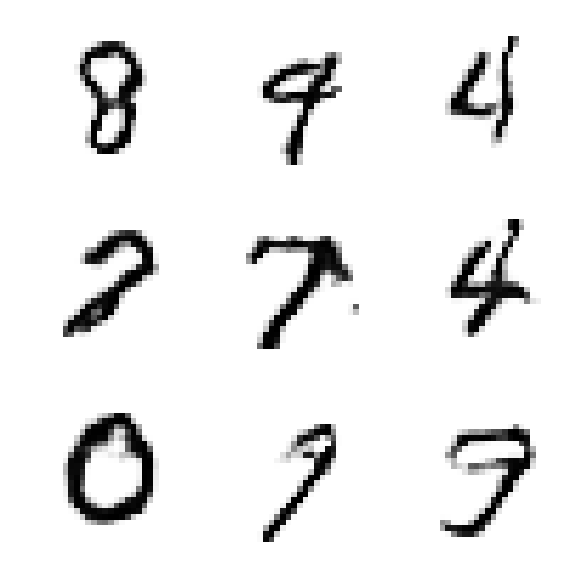 8 9 4
2 7 4
0 9 9